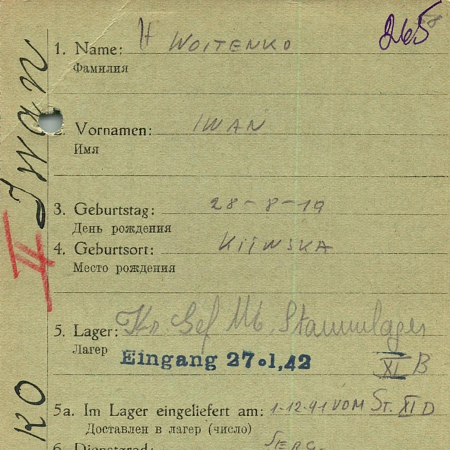 265
1. Name: WOITENKO
Фамилия
2. Vornamen: IWAN
Имя
3. Geburtstag: 28-8-19
День рождения
4. Geburtsort: KIIWSKA
Место рождения
5. Lager: Kr. Gef. Stammlager
Лагер
XI B
Eingang 27.1.42
5a. Im Lager eingeliefert am: 1-12-41 VOM ST. XI D
Доставлен в лагер (число)
6. Dienstgrad: SERG-
ko Iwan
II